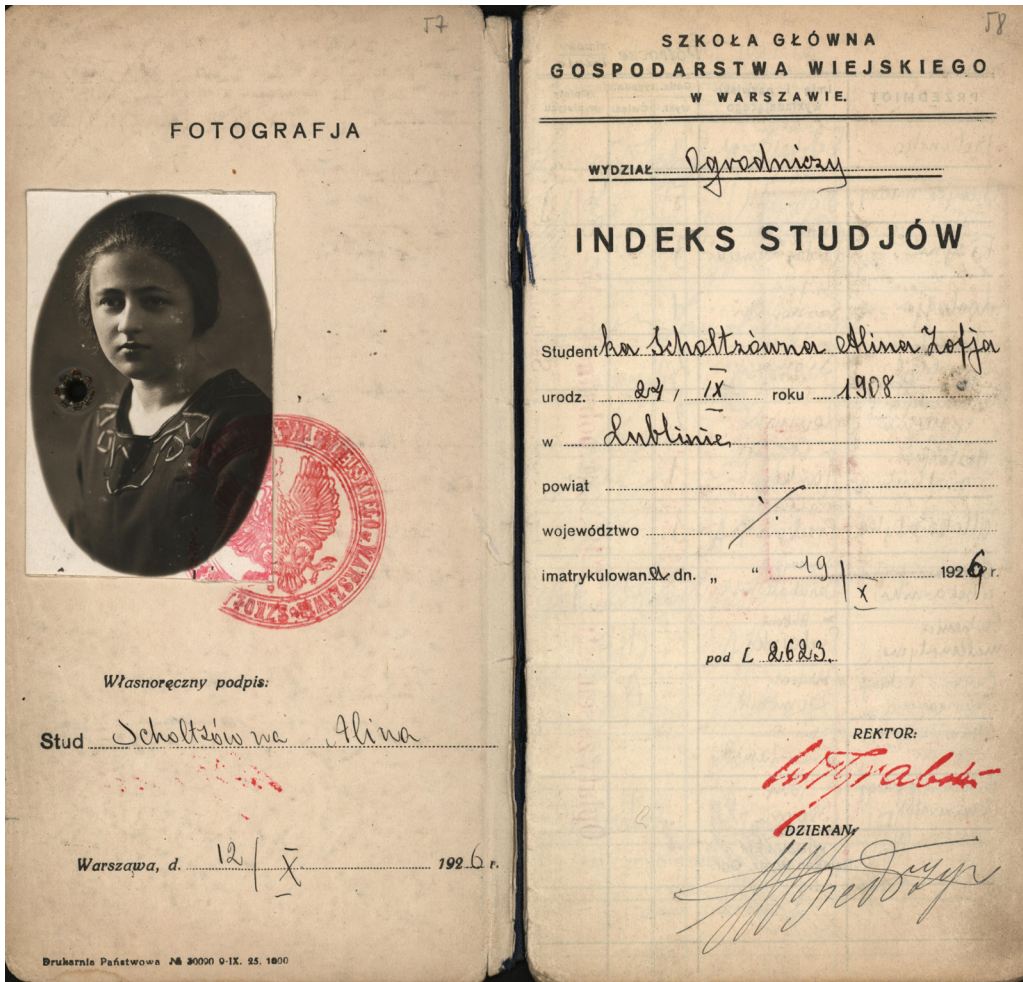 57
FOTOGRAFJA
Własnoręczny podpis:
Stud Scholtzówna Alina
Warszawa, d. 12/X 1926 r.
Drukarnia Państwowa № 30090 9-IX. 25. 1000
58
SZKOŁA GŁÓWNA
GOSPODARSTWA WIEJSKIEGO
W WARSZAWIE.
WYDZIAŁ Ogrodniczy
INDEKS STUDJÓW
Studentka Scholtzówna Alina Zofja
urodz. 24/IX roku 1908
w Lublinie
powiat
województwo
imatrykulowana dn. „ “ 19/X 1926 r.
pod L 2623.
REKTOR:
DZIEKAN: